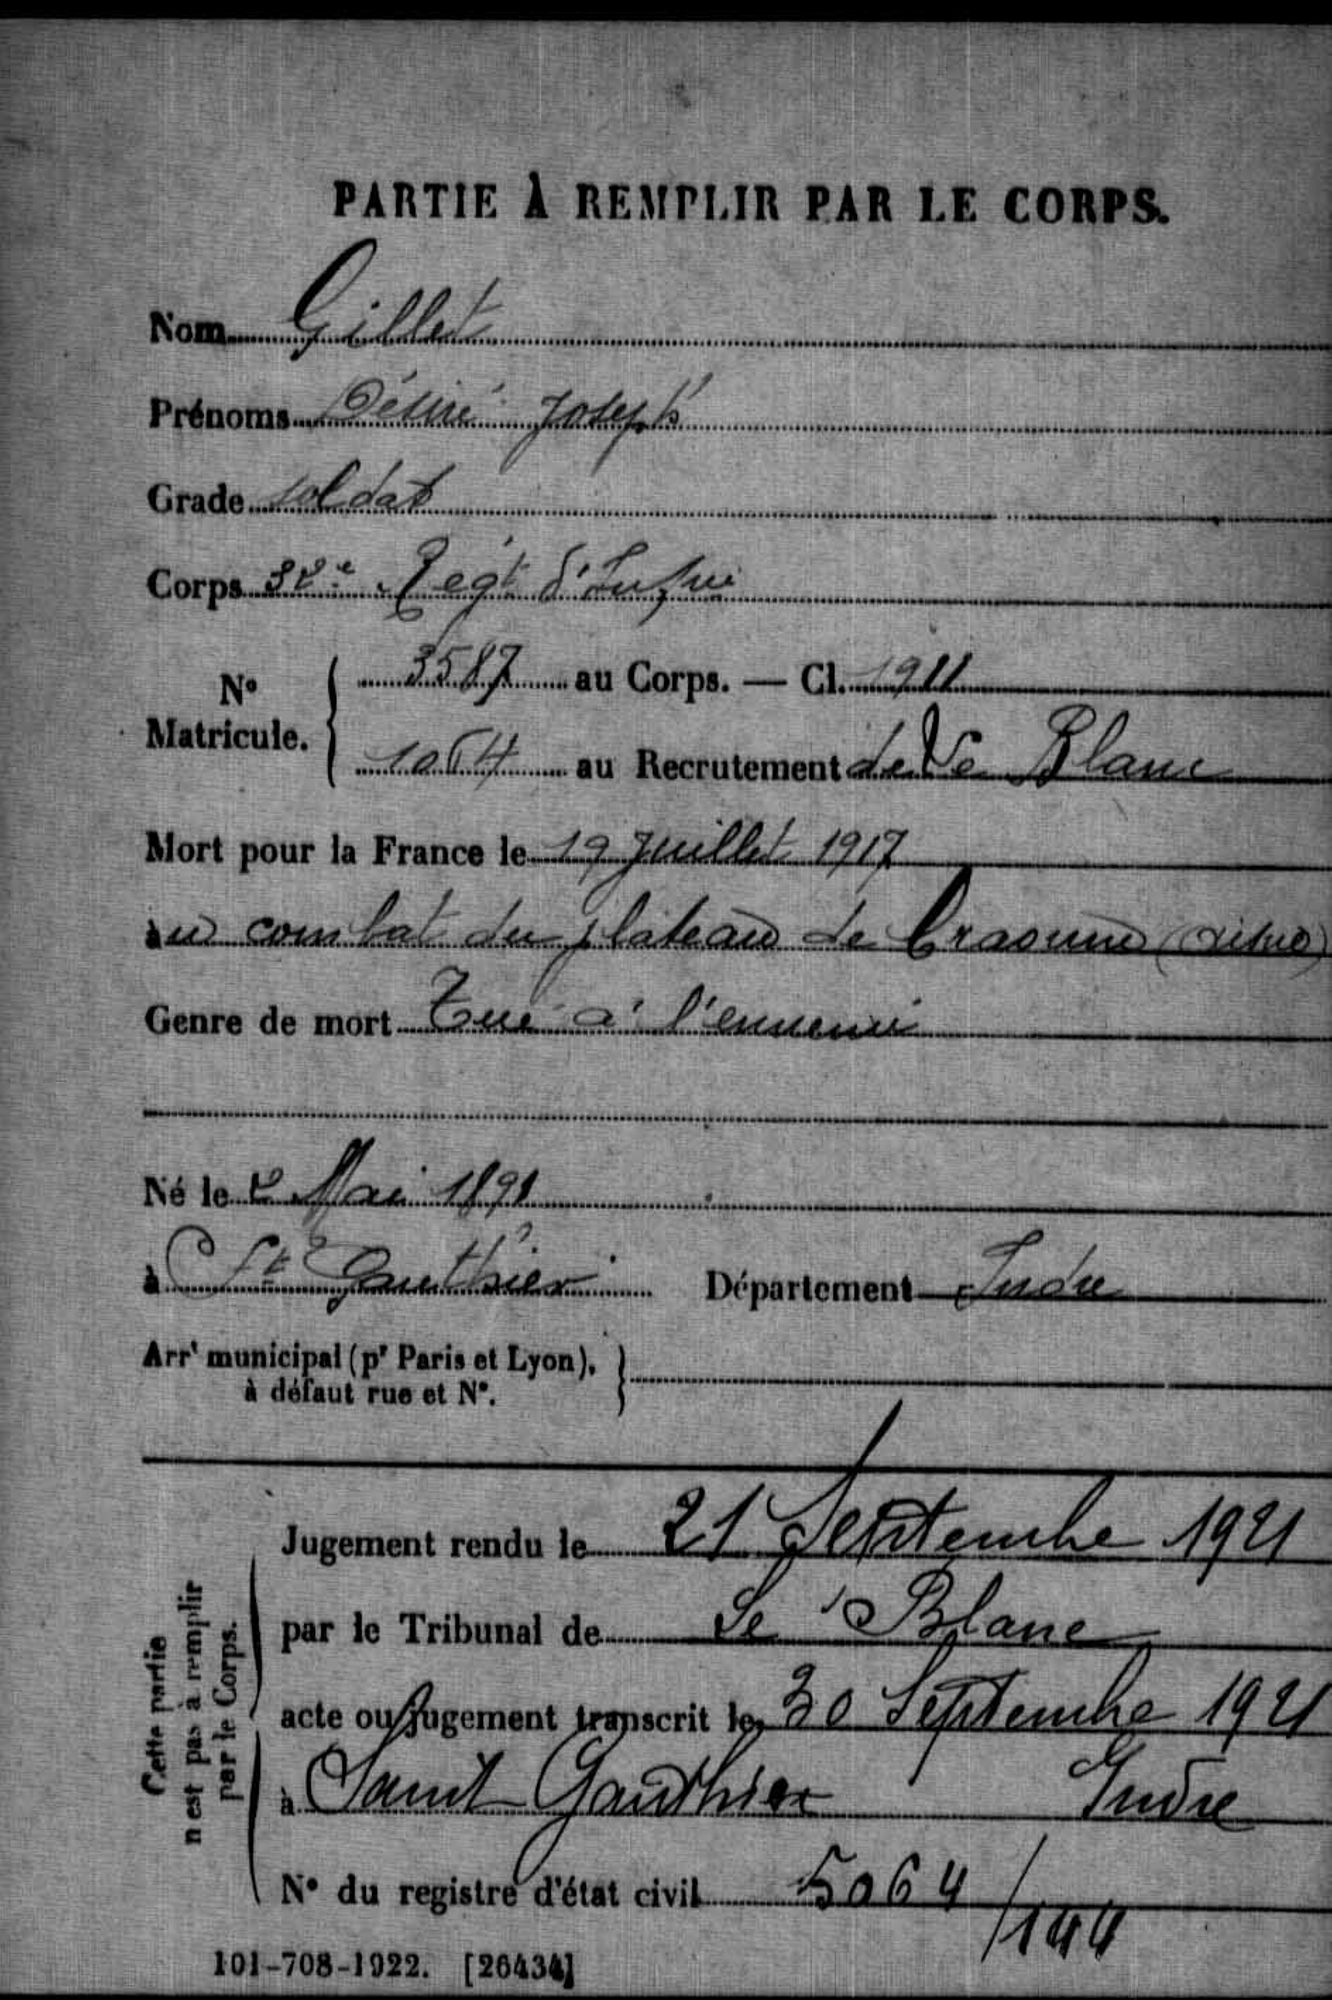 PARTIE À REMPLIR PAR LE CORPS.
Nom Gillet
Prénoms Désiré Joseph
Grade soldat
Corps 32e Regt d'Infrie
No Matricule. 3587 au Corps. — Cl. 1911
1064 au Recrutement de Le Blanc
Mort pour la France le 19 Juillet 1917
au combat du plateau de Craonne (Aisne)
Genre de mort Tué à l'ennemi
Né le 2 Mai 1891
à St Gauthier Département Indre
Arrt municipal (pr Paris et Lyon),
à défaut rue et No.
Cette partie
n'est pas à remplir
par le Corps.
Jugement rendu le 21 Septembre 1921
par le Tribunal de Le Blanc
acte ou jugement transcrit le 30 Septembre 1921
à Saint Gauthier Indre
No du registre d'état civil 5064/144
101-708-1922. [26434]